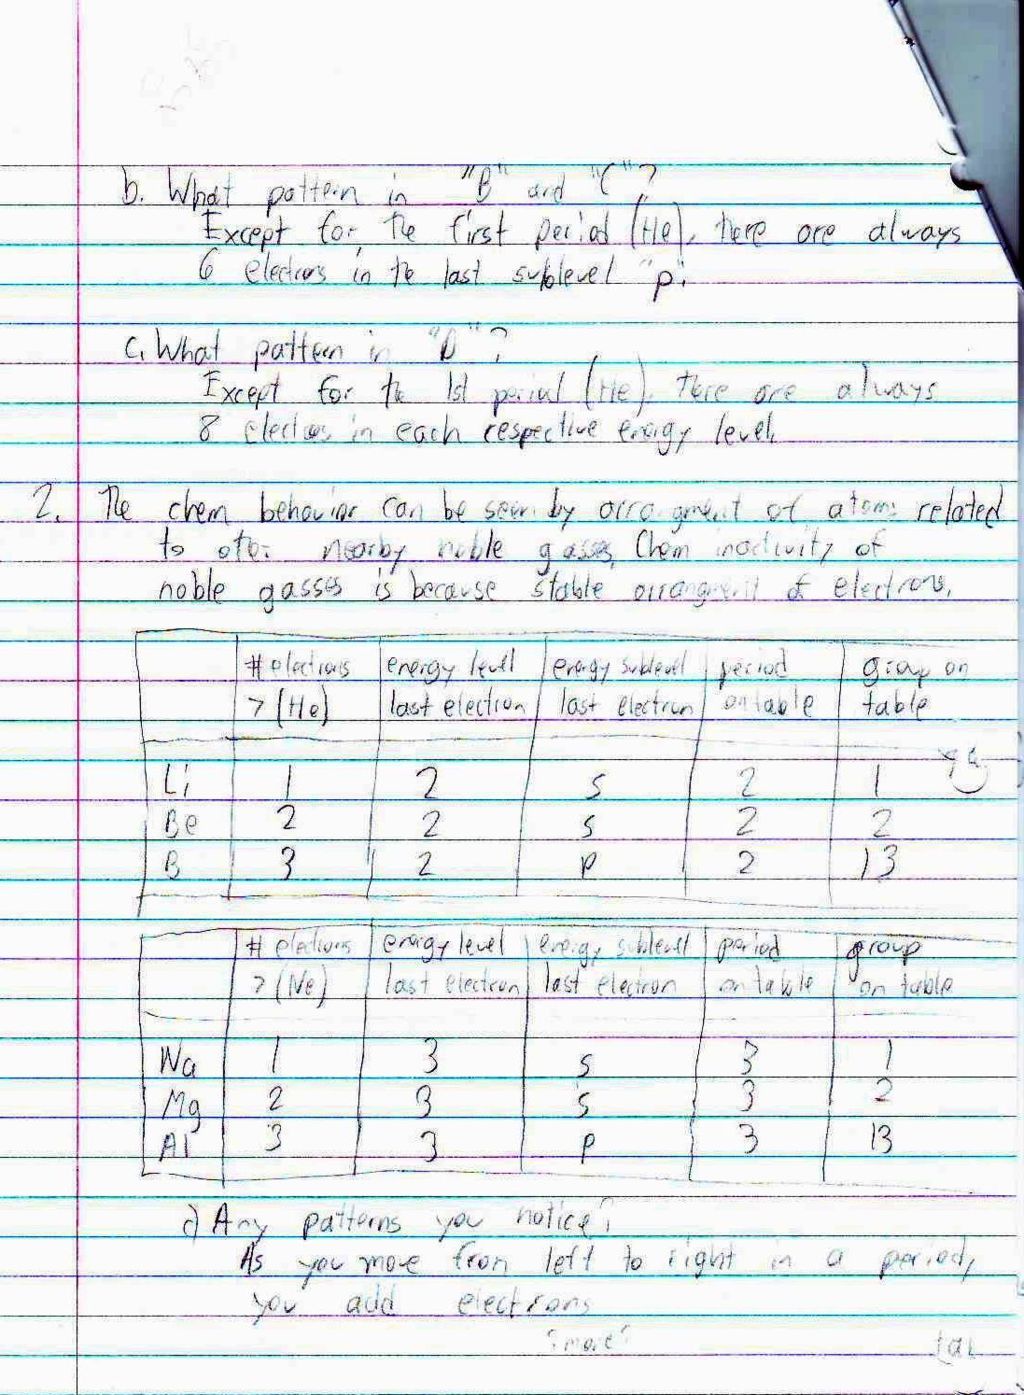 b. What pattern in "B" and "C"?
Except for the first period (He), there are always
6 electrons in the last sublevel "p".
c. What pattern in "D"?
Except for the 1st period (He), there are always
8 electrons in each respective energy level.
2. The chem behavior can be seen by arrangment of atoms related
to oter nearby noble gasses. Chem inactivity of
noble gasses is because stable arrangment of electrons.
# electrons energy level energy sublevel period group on
> (He) last electron last electron on table table
Li 1 2 s 2 1
Be 2 2 s 2 2
B 3 2 p 2 13
# electrons energy level energy sublevel period group
> (Ne) last electron last electron on table on table
Na 1 3 s 3 1
Mg 2 3 s 3 2
Al 3 3 p 3 13
c) Any patterns you notice?
As you move from left to right in a period,
you add electrons
?more?